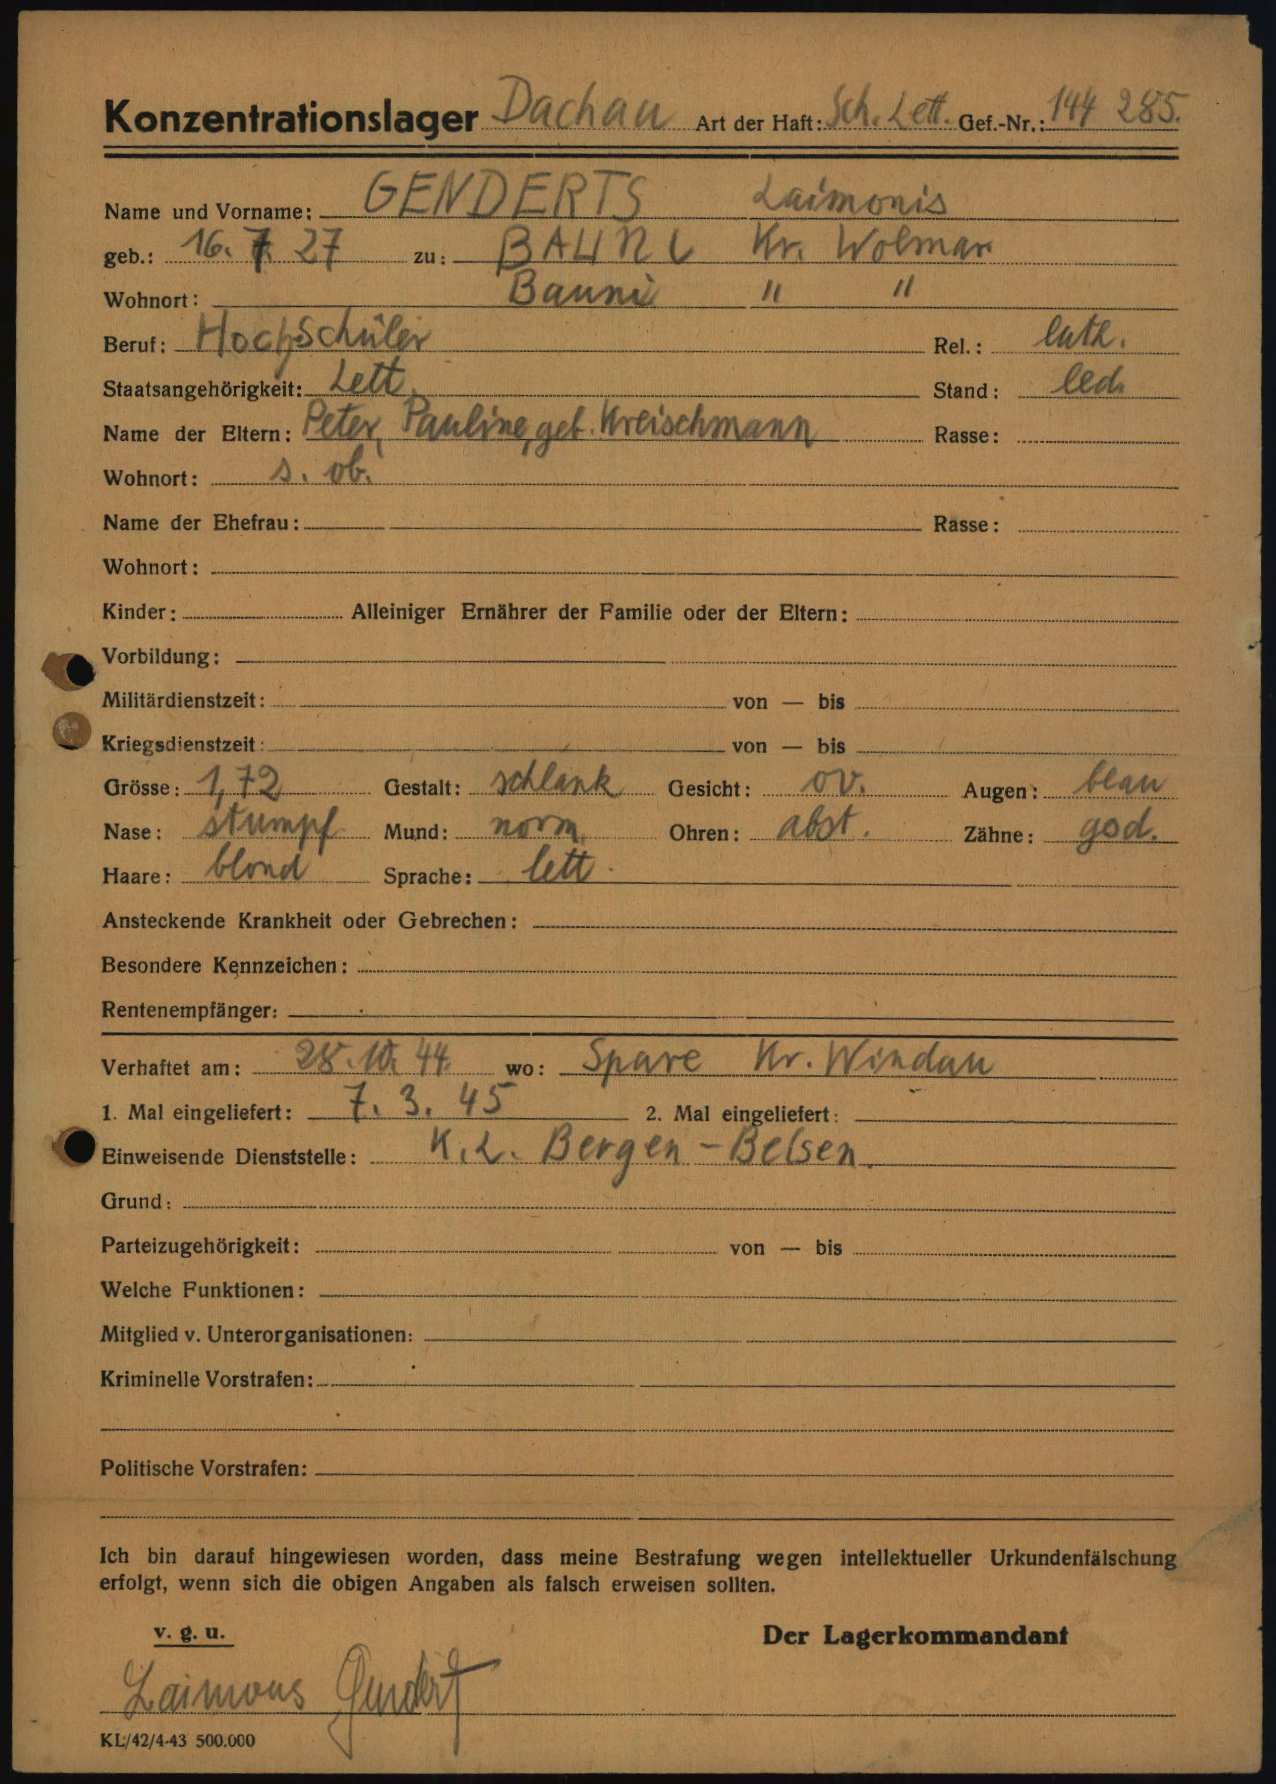 Konzentrationslager Dachau Art der Haft: Sch. Lett. Gef.-Nr.: 144 285.
Name und Vorname: GENDERTS Laimonis
geb.: 16. 7. 27 zu: BAUNI Kr. Wolmar
Wohnort: Bauni " "
Beruf: Hochschüler Rel.: luth.
Staatsangehörigkeit: Lett. Stand: led.
Name der Eltern: Peter, Pauline, geb. Kreischmann Rasse:
Wohnort: s. ob.
Name der Ehefrau: Rasse:
Wohnort:
Kinder: Alleiniger Ernährer der Familie oder der Eltern:
Vorbildung:
Militärdienstzeit: von — bis
Kriegsdienstzeit: von — bis
Grösse: 1,72 Gestalt: schlank Gesicht: ov. Augen: blau
Nase: stumpf Mund: norm. Ohren: abst. Zähne: gsd.
Haare: blond Sprache: lett.
Ansteckende Krankheit oder Gebrechen:
Besondere Kennzeichen:
Rentenempfänger:
Verhaftet am: 28. 10. 44. wo: Spare Kr. Windau
1. Mal eingeliefert: 7. 3. 45 2. Mal eingeliefert:
Einweisende Dienststelle: K.L. Bergen-Belsen.
Grund:
Parteizugehörigkeit: von — bis
Welche Funktionen:
Mitglied v. Unterorganisationen:
Kriminelle Vorstrafen:
Politische Vorstrafen:
Ich bin darauf hingewiesen worden, dass meine Bestrafung wegen intellektueller Urkundenfälschung
erfolgt, wenn sich die obigen Angaben als falsch erweisen sollten.
v. g. u. Der Lagerkommandant
Laimons Gendert
KL/42/4-43 500.000